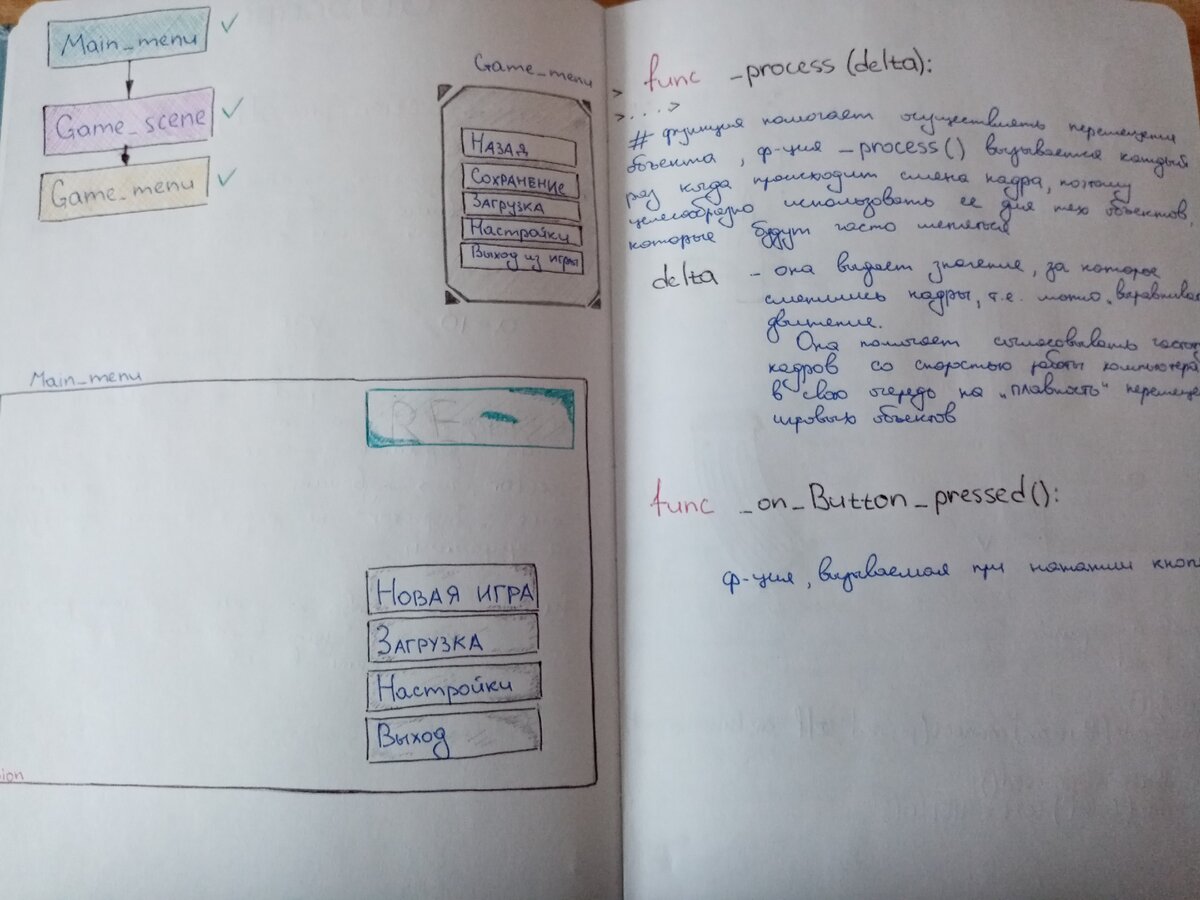 Main_menu
Game_scene
Game_menu
Game_menu
Назад
Сохранение
Загрузка
Настройки
Выход из игры
Main_menu
RE
Новая игра
Загрузка
Настройки
Выход
sion
func _process (delta):
>
>...>
# функция помогает осуществлять перемещение
объекта, ф-ция _process() вызывается каждый
раз когда происходит смена кадра, поэтому
целесообразно использовать ее для тех объектов,
которые будут часто меняться
delta - она выдает значение, за которое
сменились кадры, т.е. можно "выравнива
движение.
Она помогает согласовывать часто
кадров со скоростью работы компьютера
в свою очередь на „плавность“ перемеще
игровых объектов
func _on_Button_pressed():
ф-ция, вызываемая при нажатии кноп